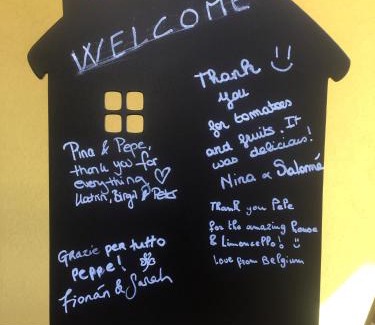 WELCOME
Pina & Pepe,
thank you for
everything ♡
Katrin, Birgit & Peter
Grazie per tutto
Peppe!
Fionán & Sarah
Thank :)
you
for tomatoes
and fruits. It
was delicious!
Nina & Salomé
Thank you Pepe
for the amazing house
& Limoncello! :)
Love from Belgium